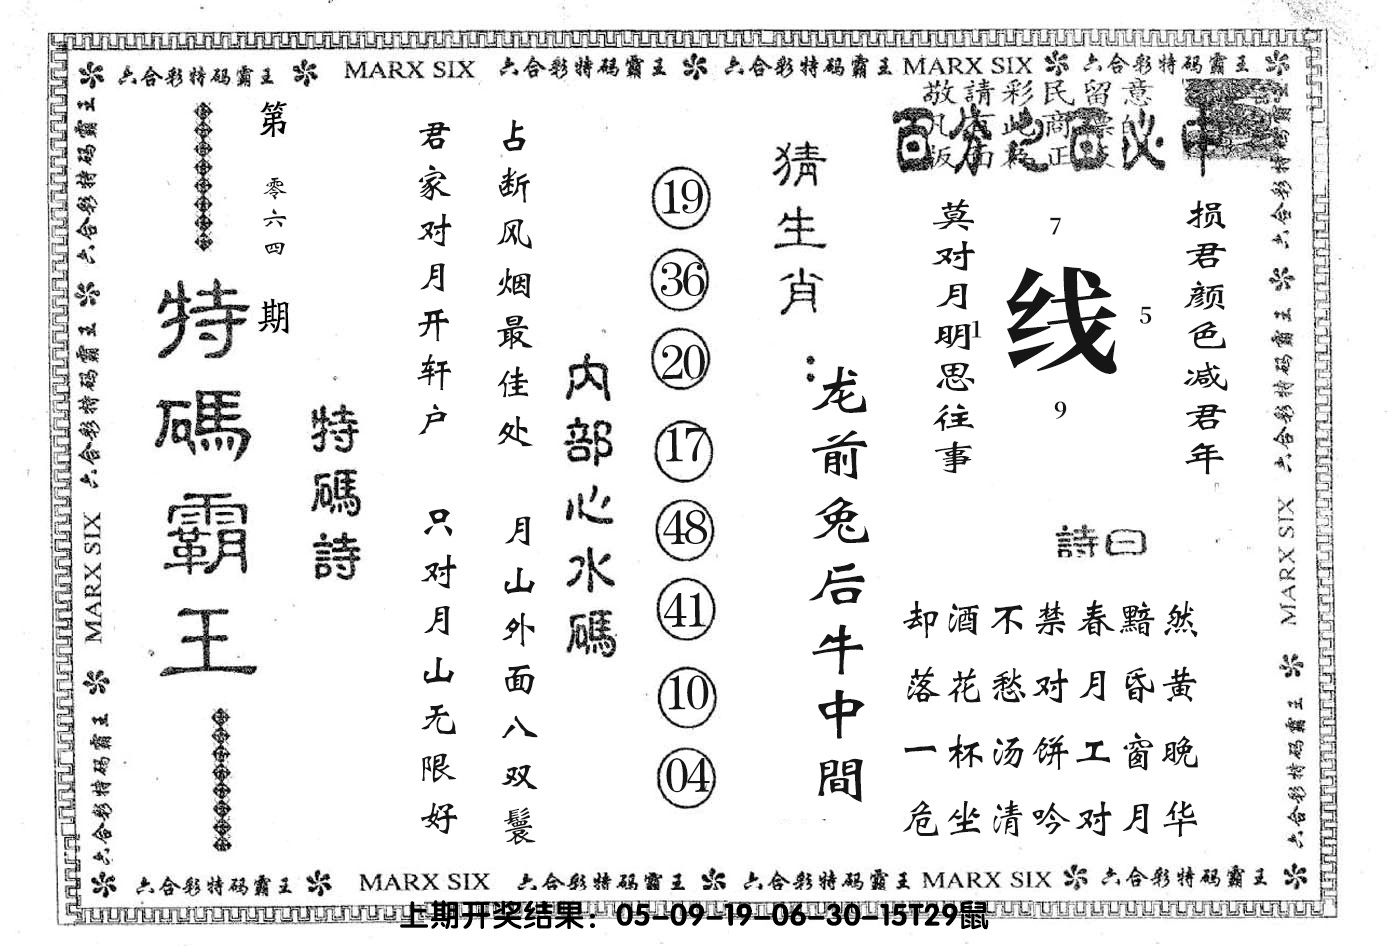 六合彩特码霸王 MARX SIX 六合彩特码霸王 六合彩特码霸王 MARX SIX 六合彩特码霸王
六合彩特码霸王 六合彩特码霸王 MARX SIX 六合彩特码霸王
第零六四期
特碼霸王
特碼詩
君家对月开轩户
只对月山无限好
占断风烟最佳处
月山外面八双鬟
内部心水碼
19
36
20
17
48
41
10
04
猜生肖:
龙前兔后牛中間
敬請彩民留意
百分之百必中
莫对月明思往事
7
1
线
5
9
损君颜色减君年
詩曰
却酒不禁春黯然
落花愁对月昏黄
一杯汤饼工窗晚
危坐清吟对月华
六合彩特码霸王 六合彩特码霸王 MARX SIX 六合彩特码霸王
六合彩特码霸王 MARX SIX 六合彩特码霸王 六合彩特码霸王 MARX SIX 六合彩特码霸王
上期开奖结果：05-09-19-06-30-15T29鼠